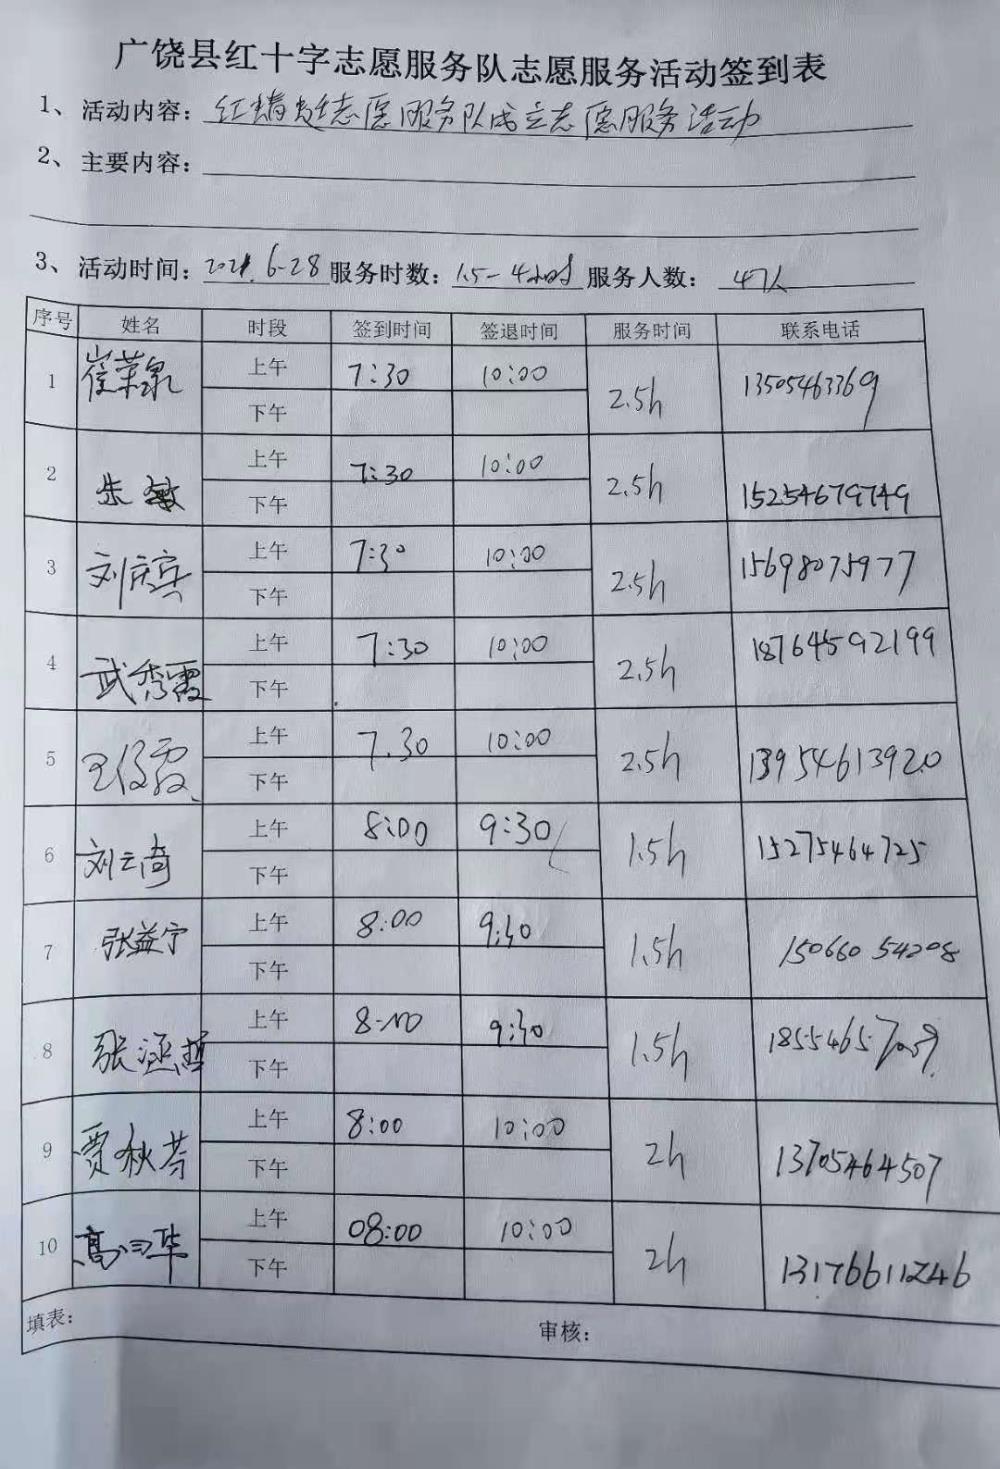 广饶县红十字志愿服务队志愿服务活动签到表
1、活动内容：红蜻蜓志愿服务队成立志愿服务活动
2、主要内容：
3、活动时间：2021.6-28 服务时数：1.5-4小时 服务人数：47人
序号 姓名 时段 签到时间 签退时间 服务时间 联系电话
1 崔荣泉 上午 7:30 10:00 2.5h 13505463369
下午
2 朱敏 上午 7:30 10:00 2.5h 15254679749
下午
3 刘庆宾 上午 7:30 10:00 2.5h 15698075977
下午
4 武秀霞 上午 7:30 10:00 2.5h 18764592199
下午
5 上午 7.30 10:00 2.5h 13954613920
下午
6 刘云奇 上午 8:00 9:30 1.5h 15275464725
下午
7 张益宁 上午 8:00 9:30 1.5h 15066054208
下午
8 张涵哲 上午 8:00 9:30 1.5h
下午
9 贾秋芬 上午 8:00 10:00 2h 13705464507
下午
10 上午 08:00 10:00 2h 13176611246
下午
填表： 审核：